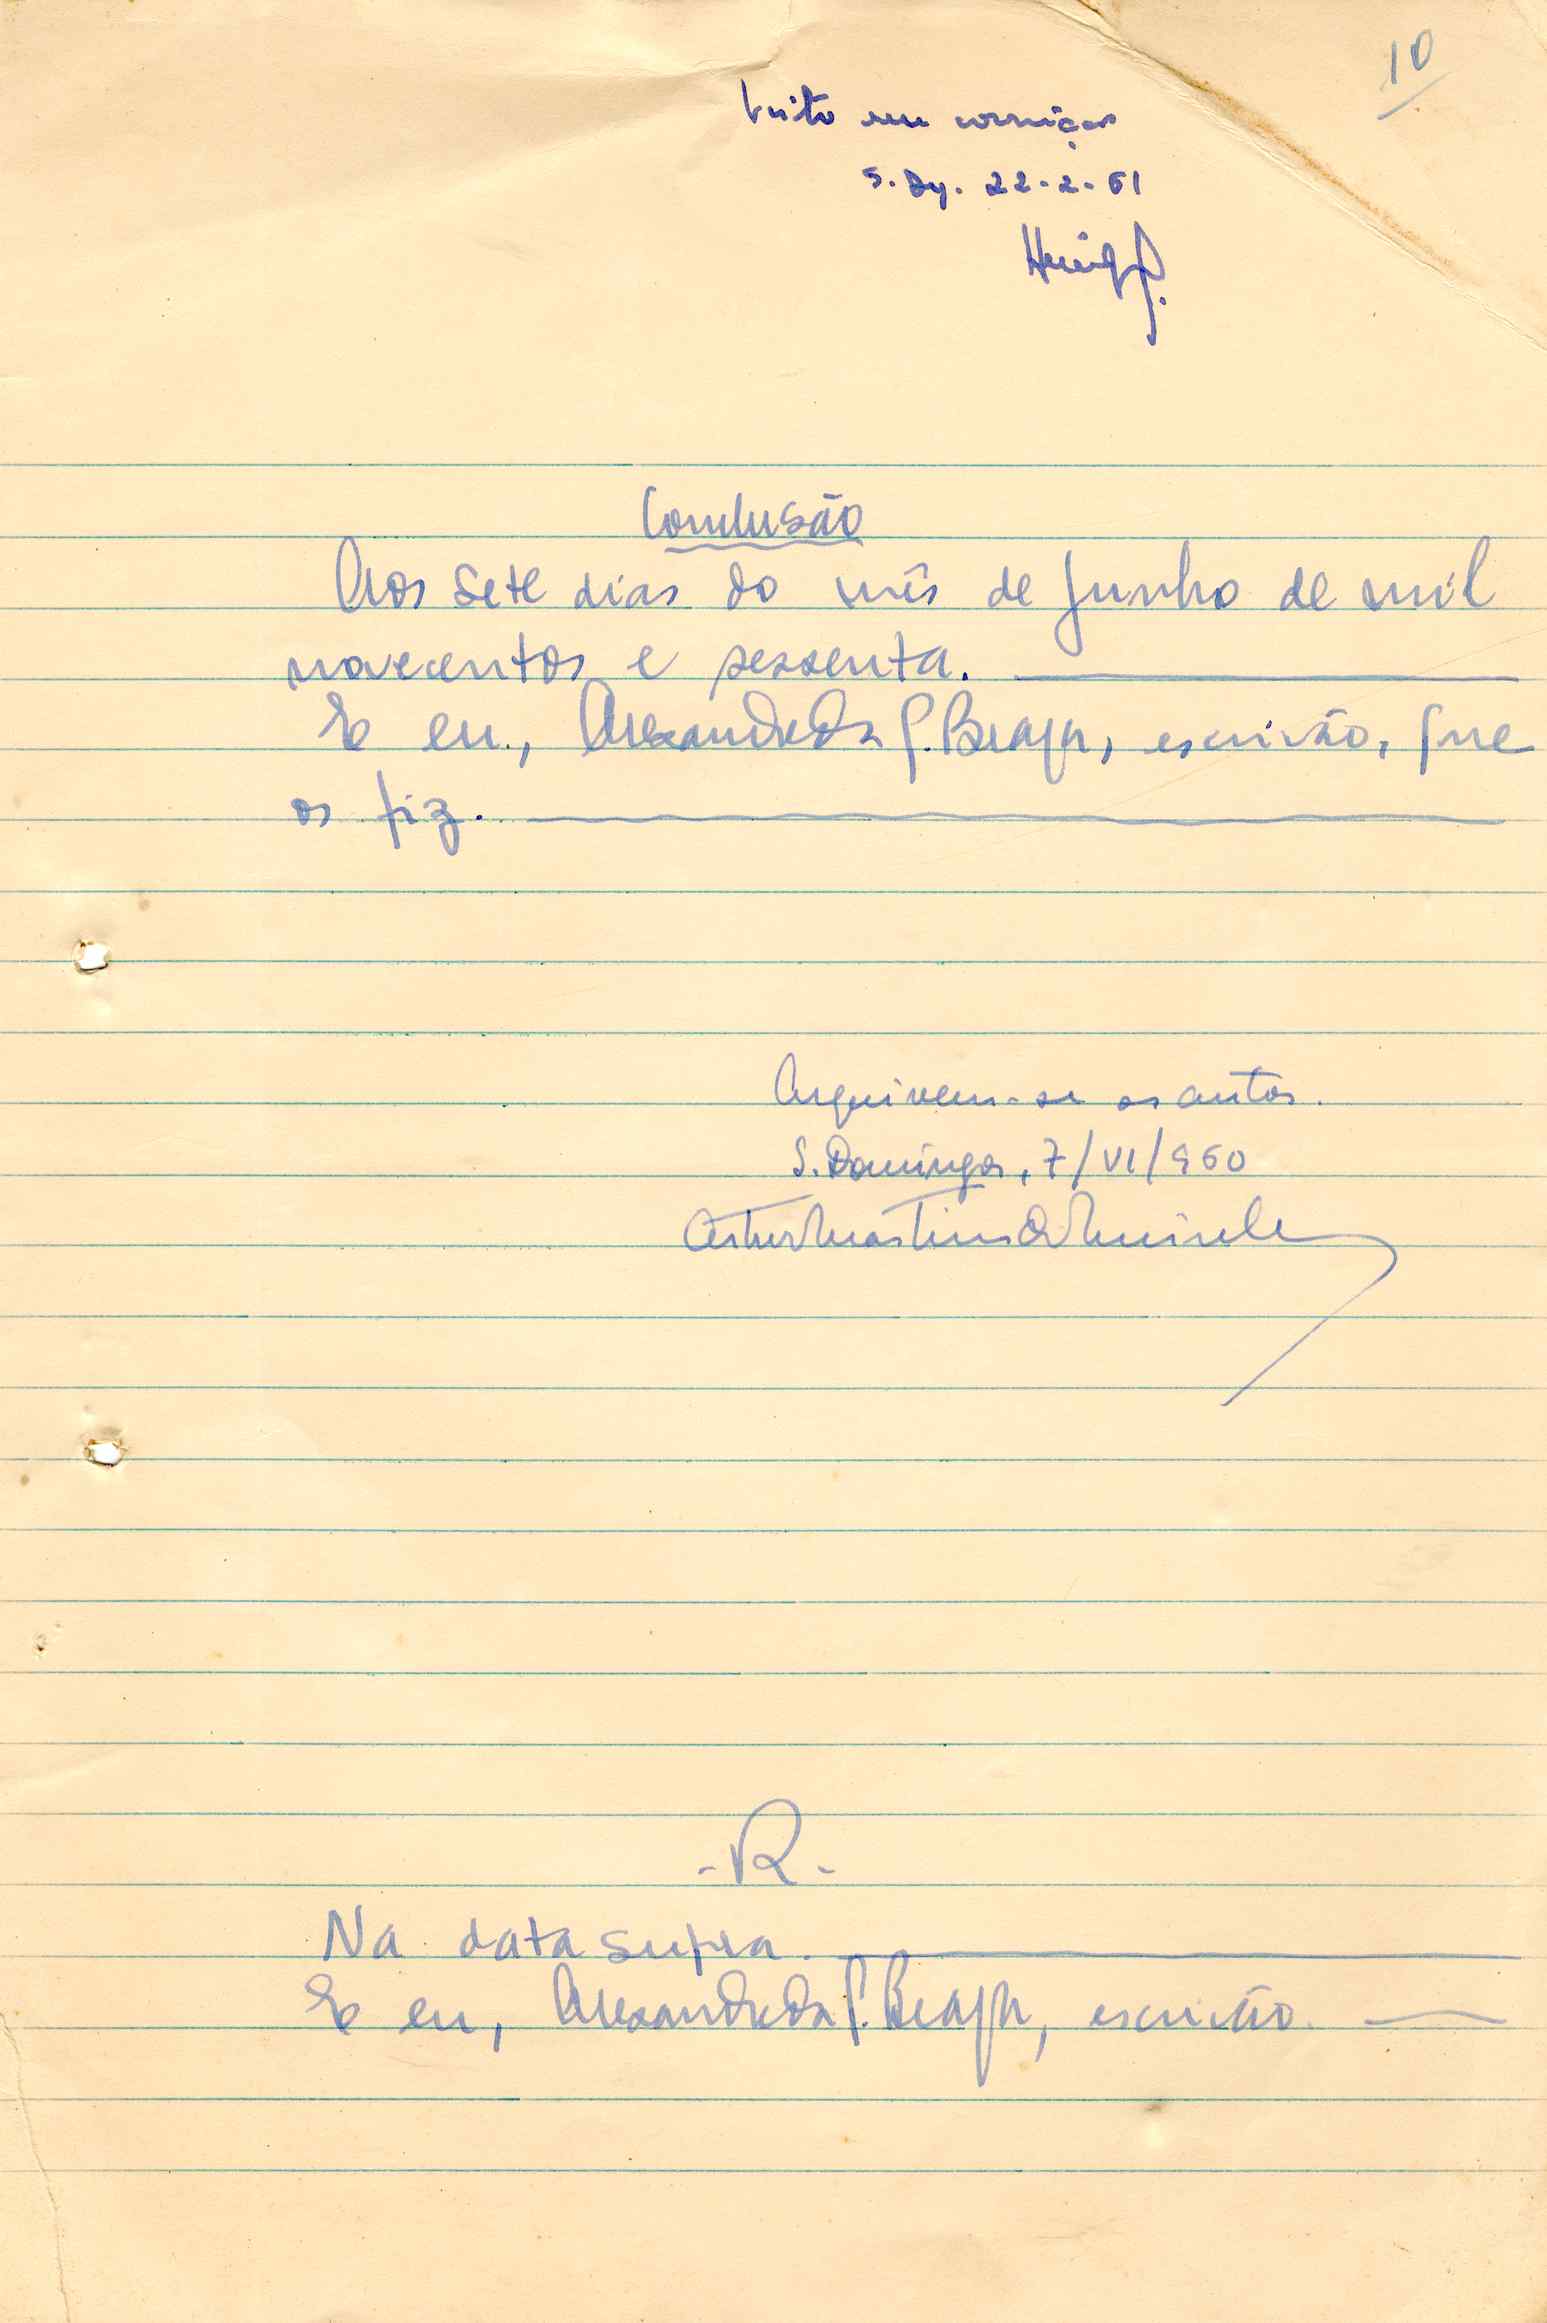 10
Visto em correição
S. Dgs. 22-2-61
Conclusão
Aos sete dias do mês de junho de mil
novecentos e sessenta.
E eu, Alexandre da S. Braga, escrivão, que
os fiz.
Arquivem-se os autos.
S. Domingos, 7/VI/960
- R -
Na data supra.
E eu, Alexandre da S. Braga, escrivão.